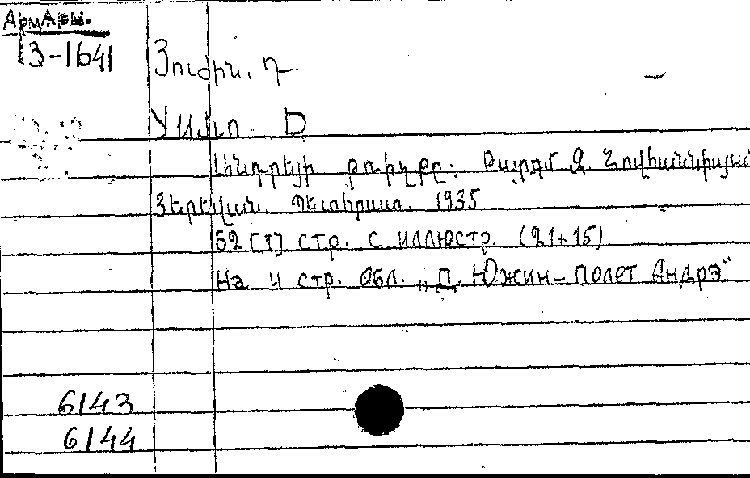 АрмАры.
13-1641
Յուժին. Պ
Անդրեյի թռիչքը: Թարգմ. Զ. Հովհաննիսյան
Յերեվան. Պետհրատ. 1935
52 [1] стр. с иллюстр. (21×15)
На 4 стр. обл. „П. Южин - Полет Андрэ"
6143
6144